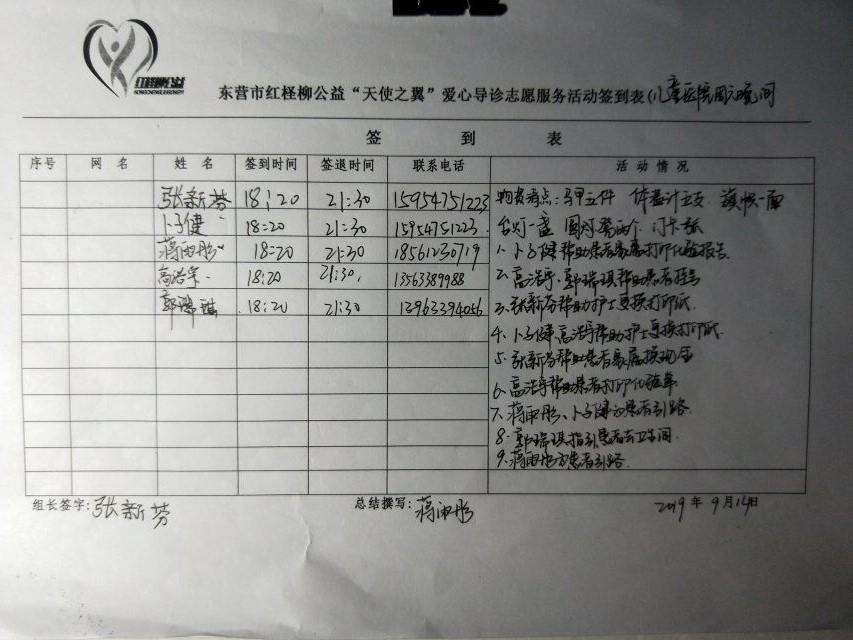 红柽柳公益
东营市红柽柳公益“天使之翼”爱心导诊志愿服务活动签到表(儿童医院周六晚间
签 到 表
序号 网 名 姓 名 签到时间 签退时间 联系电话 活动情况
张新芬 18:20 21:30 15954751223 物资清点:马甲五件 体温计五支 旗帜一面
卜子健 18:20 21:30 15954751223 台灯一盏 圆灯笼两个
蒋雨彤 18:20 21:30 18561230719 1、卜子健帮助患者家属打印化验报告
高浩宇 18:20 21:30 13563389988 2、高浩宇、郭瑞琪帮助患者挂号
郭瑞琪 18:20 21:30 13963394056 3、张新芬帮助护士更换打印纸
4、卜子健、高浩宇帮助护士更换打印纸
5、张新芬帮助患者家属换现金
6、高浩宇帮助患者打印化验单
7、蒋雨彤、卜子健为患者引路
8、郭瑞琪指引患者去卫生间
9、蒋雨彤为患者引路
组长签字:张新芬 总结撰写:蒋雨彤 2019年9月14日